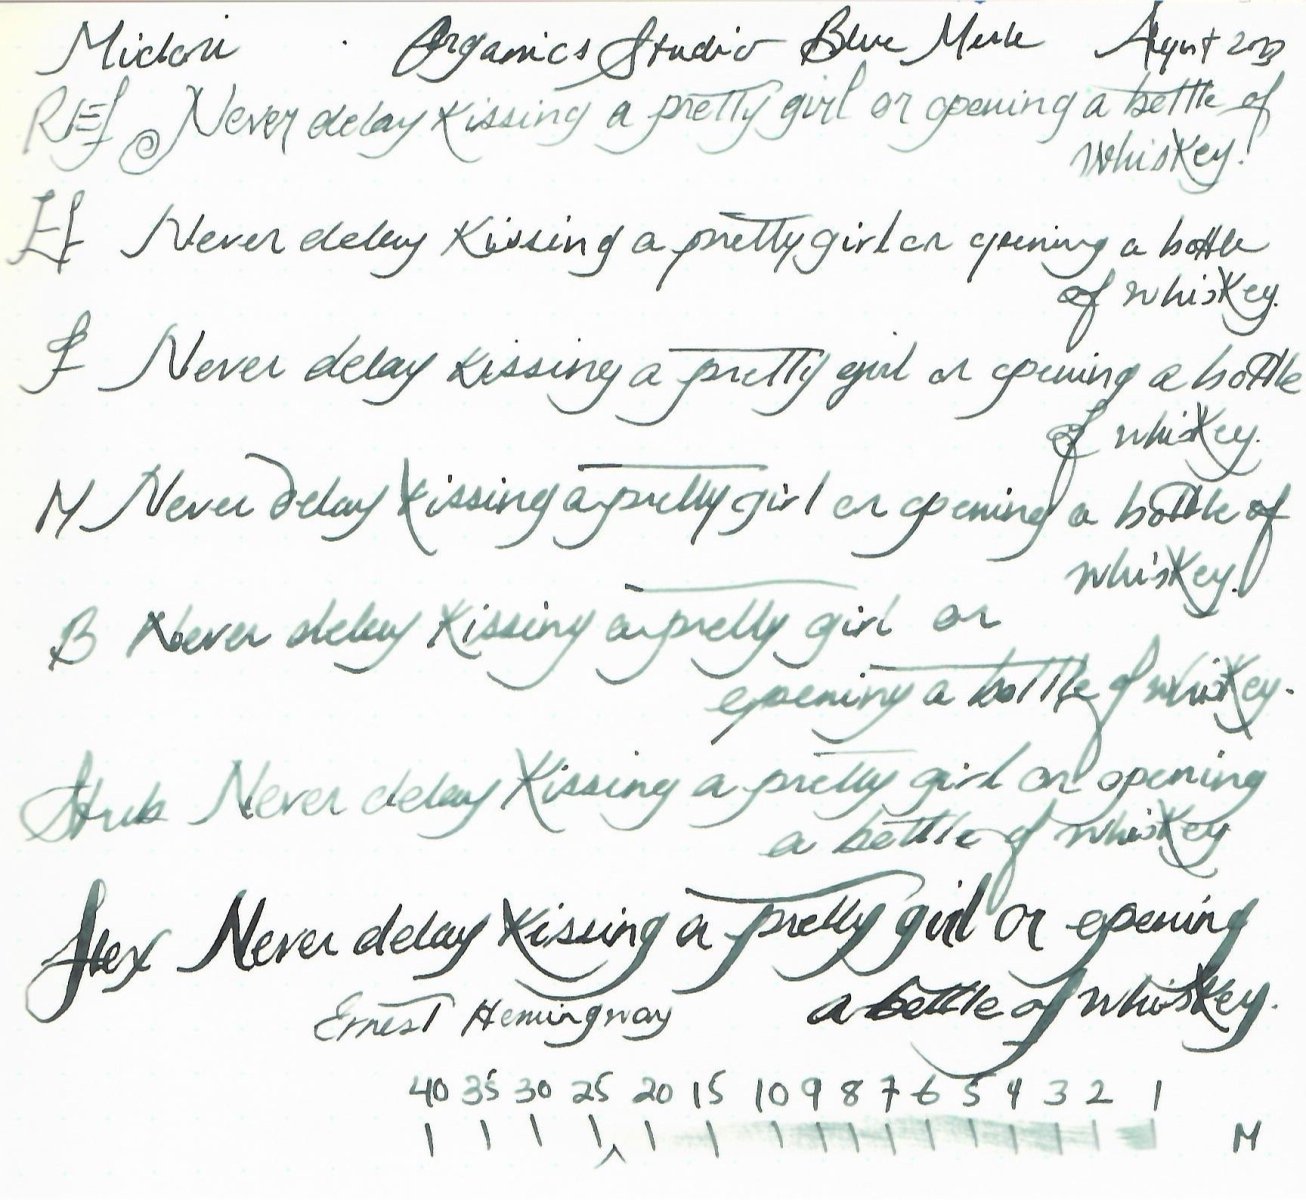 Midori . Organics Studio Blue Merle August 2023
REF Never delay kissing a pretty girl or opening a bottle of
whiskey.
EF Never delay kissing a pretty girl or opening a bottle
of whiskey.
F Never delay kissing a pretty girl or opening a bottle
of whiskey.
M Never delay kissing a pretty girl or opening a bottle of
whiskey.
B Never delay kissing a pretty girl or
opening a bottle of whiskey.
Stub Never delay kissing a pretty girl or opening
a bottle of whiskey
flex Never delay kissing a pretty girl or opening
a bottle of whiskey.
Ernest Hemingway
40 35 30 25 20 15 10 9 8 7 6 5 4 3 2 1
M